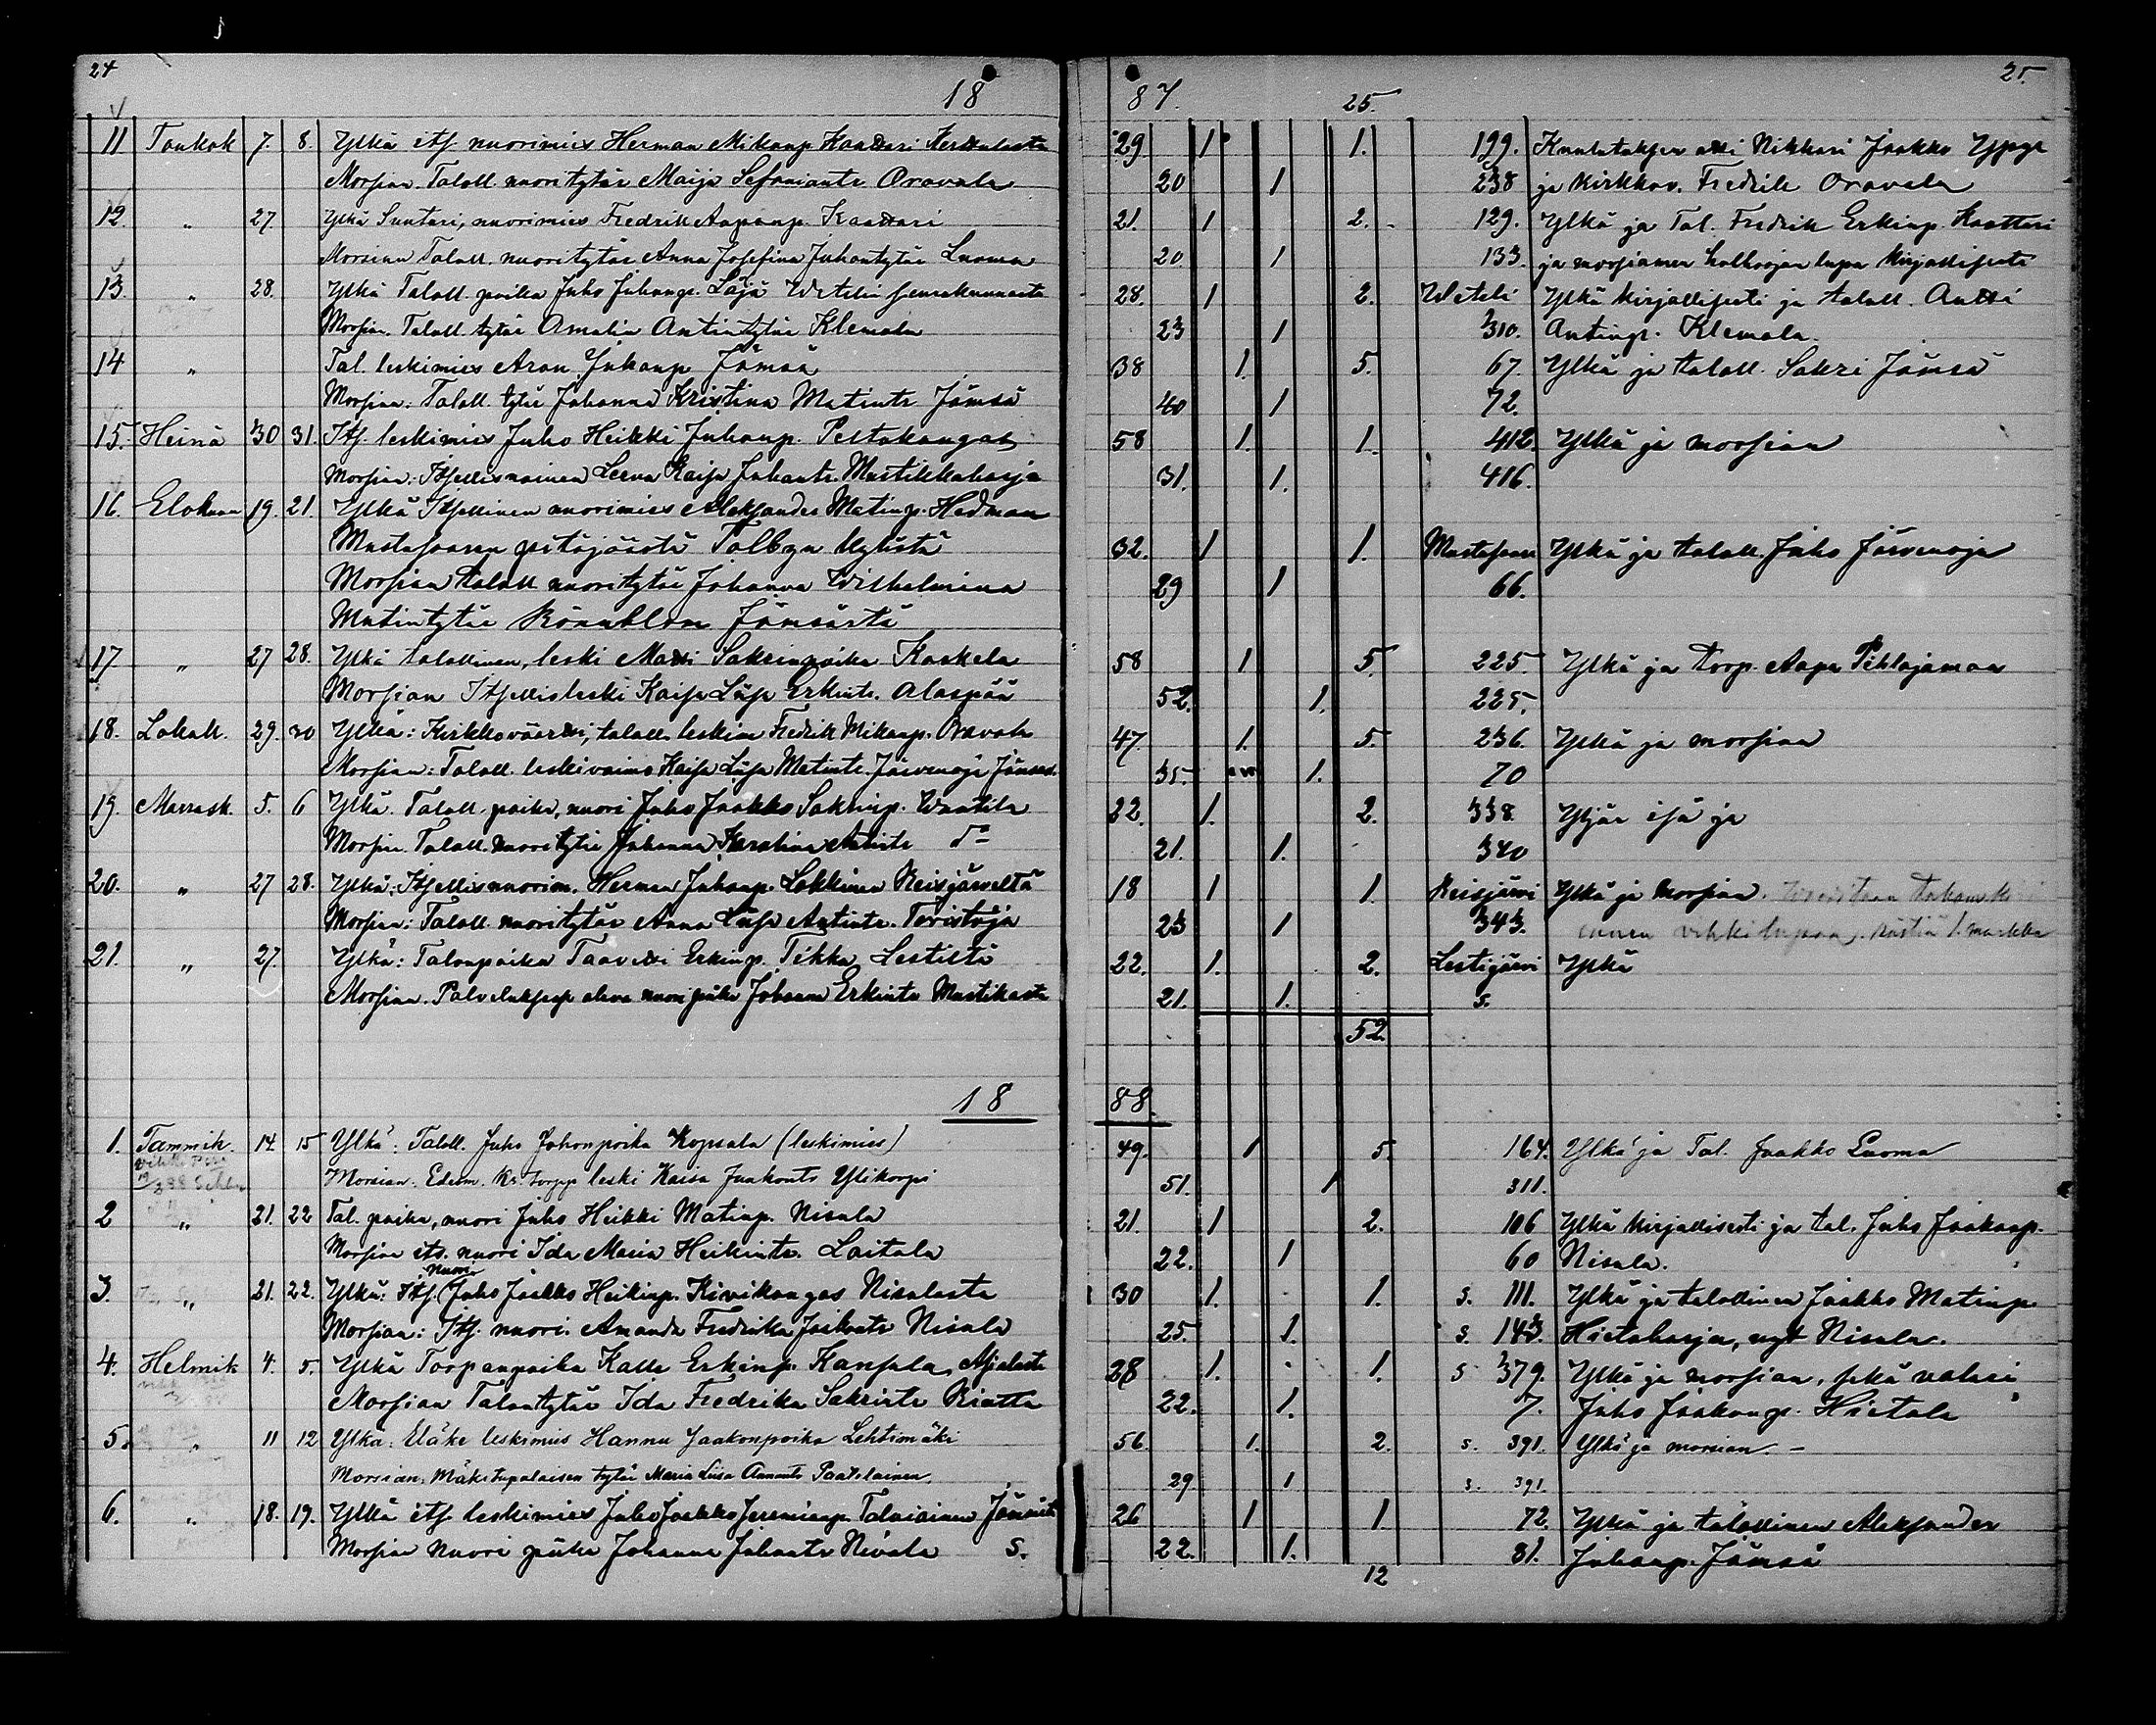 24
18
11 Toukok 7. 8. Ylkä itf. nuorimies Herman Mikonp. Kaattari
Morsian. Talol. nuoritytär Maija Oravala
12. " 27. Ylkä Suntari, nuorimies Fredrik Aaponp. Kaattari
Morsian Talol. nuoritytär Anna Josefina Juhontytär Luoma
13. " 28. Ylkä Talol. poika Juho Juhonp. Wetelin seurakunnasta
Morsian. Talol. tytär Amalia Antintytär Klemola
14 " Tal. leskimies Aron Juhonp. Jämsä
Morsian: Talol. tytär Johanna Kristina Matintr Jämsä
15. Heinä 30 31. Itf. leskimies Juho Heikki Juhonp. Peltokangas
Morsian: Itsellisnainen Leena Kaisa Juhontr. Mustikkaharja
16. Elokuun 19. 21. Ylkä Itsellinen nuorimies Aleksander Matinp. Hedman
Mustasaaren pitäjästä Tölbyn kylästä
Morsian talol nuoritytär Johanna Wilhelmina
Matintytär Jämsästä
17. " 27 28. Ylkä talollinen, leski Matti Sakrinpoika Kaskela
Morsian Itsellisleski Kaisa Liisa Erkintr. Alaspää
18. Lokak. 29. 30 Ylkä: Kirkkoväärtti, talol. leskim Fredrik Mikonp. Oravala
Morsian: Talol. leskivaimo Kaisa Liisa Matintr. Järvenoja
19. Marrask. 5. 6 Ylkä. Talol. poika, nuori Juho Jaakko Sakrinp.
Morsian. Talol. nuoritytär Johanna Karolina
20. " 27 28. Ylkä: Itsellisnuorim. Herman Juhonp. Lokkinen Reisjärveltä
Morsian: Talol. nuoritytär Anna Liisa Antintr.
21. " 27. Ylkä: Talonpoika Taavetti Erkinp. Tikka Lestistä
Morsian. oleva nuori piika Johanna Erkintr
18
1. Tammik. 14 15 Ylkä: Talol. Juho Juhonpoika Kopsala (leskimies)
Morsian. leski Kaisa Jaakontr Ylikorpi
2 " 21. 22 Tal. poika, nuori Juho Heikki Matinp. Nisula
Morsian its. nuori Ida Maria Heikintr. Laitala
3. " 21. 22. Ylkä: Itf. nuori Juho Jaakko Heikinp. Kivikangas Nisulasta
Morsian: Itf. nuori. Amanda Fredrika Jaakontr Nisula
4. Helmik 4. 5. Ylkä Torpanpoika Kalle Erkinp.
Morsian Talontytär Ida Fredrika Sakrintr
5. " 11 12 Ylkä: Eläke leskimies Hannu Jaakonpoika Lehtimäki
Morsian: Mäkitupalaisen tytär Maria Liisa
6. " 18. 19. Ylkä itf. leskimies Juho Jaakko Jeremiasp.
Morsian Nuori piika Johanna Juhontr Nivala S.
25.
87. 25.
29 1 1. 199. Nikkari Jaakko
20 1 238 ja Kirkkov. Fredrik Oravala
21. 1 2. 129. Ylkä ja Tal. Fredrik Erkinp. Kaattari
20. 1 133. ja morsiamen holhoojan lupa kirjallisesti
28. 1 2. Weteli Ylkä kirjallisesti ja talol. Antti
23 1 310. Antinp. Klemola.
38 1. 5. 67. Ylkä ja talol. Sakri Jämsä
40 1 72.
58 1. 1. 412 Ylkä ja morsian
31. 1. 416.
32. 1 1. Mustasaari Ylkä ja talol. Juho Järvenoja
29 1 66.
58 1 5. 225. Ylkä ja torp. Aapo Pihlajamaa
52. 1. 225.
47. 1. 5. 236. Ylkä ja morsian
35. 1. 70
22. 1. 2. 338. isä ja
21. 1. 340
18 1 1. Reisjärvi Ylkä ja morsian.
23 1 343. ennen vihkilupaa 1 markka
22. 1. 2. Lestijärvi Ylkä
21. 1. s.
52.
88.
49. 1 5. 164. Ylkä ja Tal. Jaakko Luoma
51. 1 311.
21. 1 2. 106 Ylkä kirjallisesti ja tal. Juho Jaakonp.
22. 1 60 Nisula.
30 1. 1. s. 111. Ylkä ja talollinen Jaakko Matinp.
25. 1. s. 143. Hietaharja, nyt Nisula.
28 1. 1. s 379. Ylkä ja morsian, sekä
22. 1. 7. Juho Jaakonp. Hietala
56. 1. 2. s. 391. Ylkä ja morsian –
29 1 s. 391.
26 1 1. 72. Ylkä ja talollinen Aleksander
22. 1. 81. Juhonp. Jämsä
12